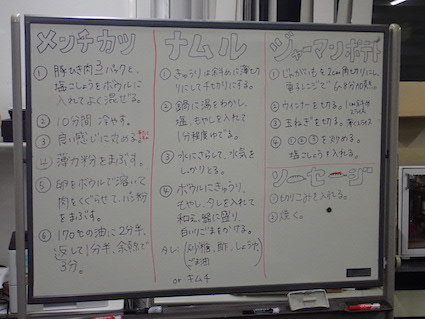 メンチカツ
① 豚ひき肉3パックと、
塩こしょうをボウルに
入れてよく混ぜる。
② 10分間 冷やす。
③ 良い感じに丸める。
④ 薄力粉をまぶす。
⑤ 卵をボウルで溶いて
肉をくぐらせて、パン粉
をまぶす。
⑥ 170℃の油に2分半、
返して1分半、余熱で
3分。
ナムル
① きゅうりは斜めに薄切
りにして千切りにする。
② 鍋に湯をわかし、
塩、もやしを入れて
1分程度ゆでる。
③ 水にさらして、水気を
しっかりとる。
④ ボウルにきゅうり、
もやし、タレを入れて
和え、器に盛り、
白いりごまをかける。
タレ(砂糖、酢、しょうゆ
ごま油
or キムチ
ジャーマンポテト
① じゃがいもを2cm角切りにし、
電子レンジで
② ウィンナーを切る。
③ 玉ねぎを切る。
④ ①②③を炒める。
塩こしょうを入れる。
ソーセージ
① 切りこみを入れる。
② 焼く。